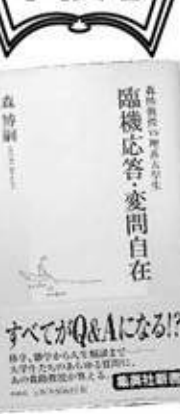 森助教授VS理系大学生
臨機応答・変問自在
森 博嗣
すべてがQ&Aになる!?
科学、雑学から人生相談まで
大学生たちのあらゆる質問に、
あの森助教授が答える。
集英社新書